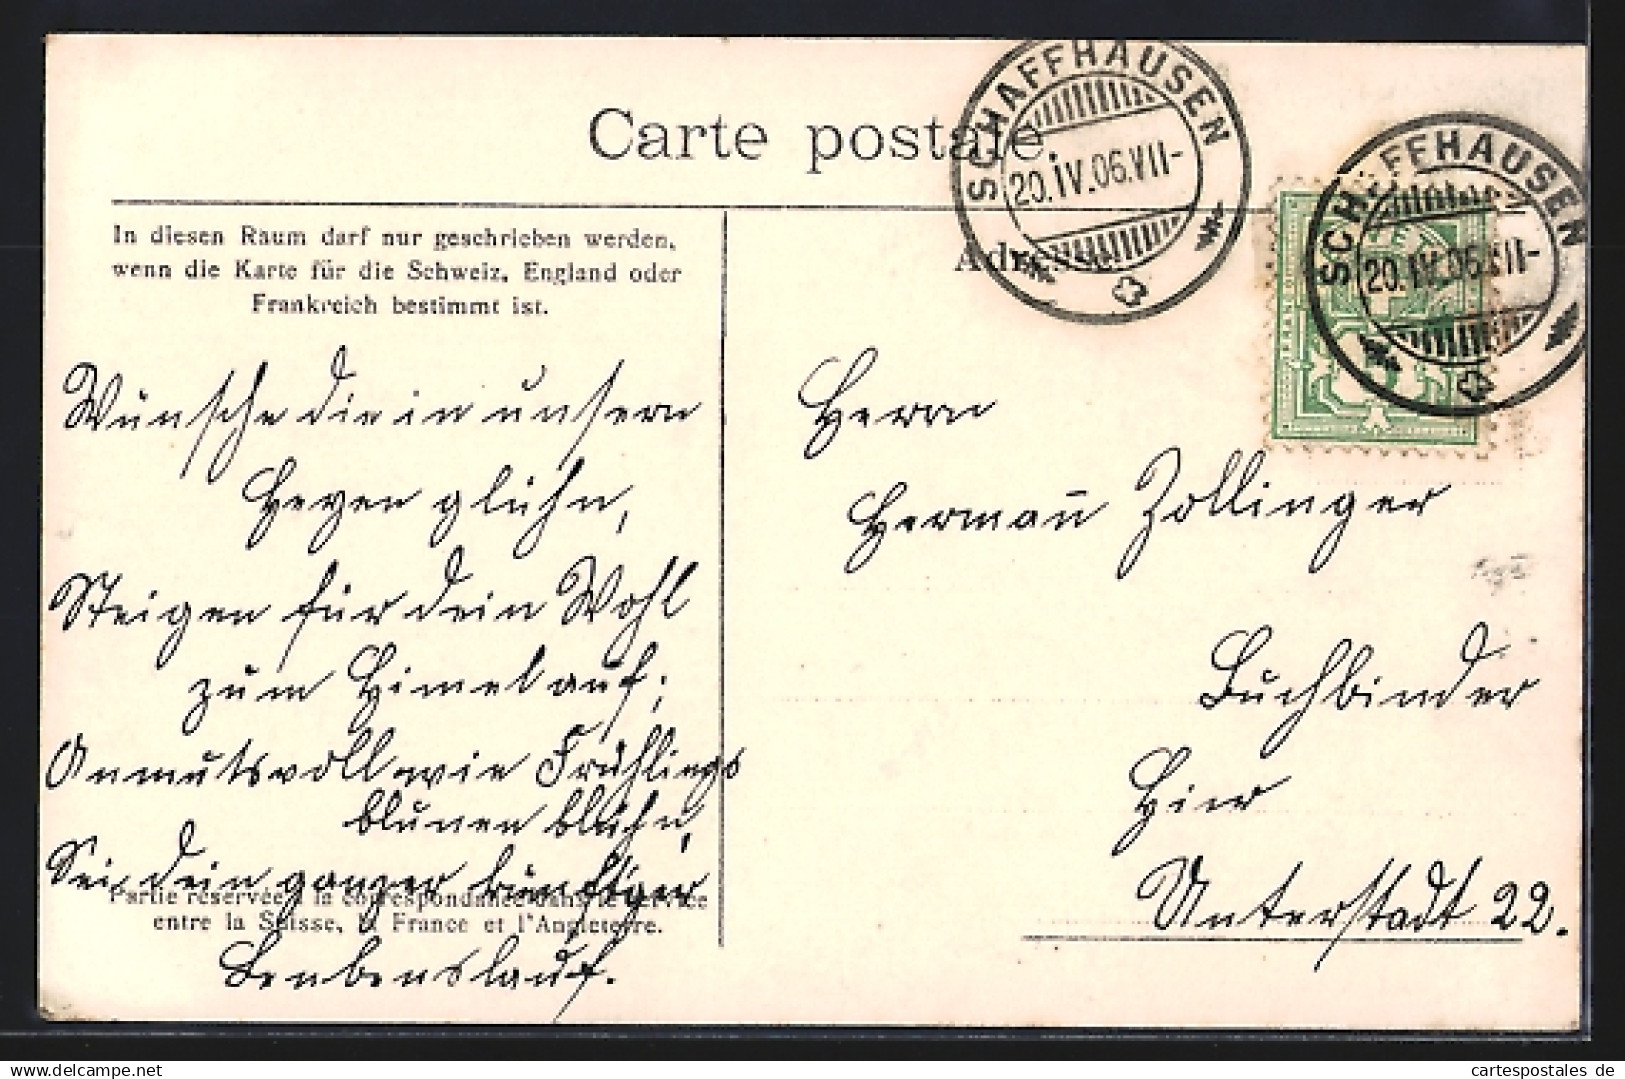 Carte postale
SCHAFFHAUSEN
20.IV.06.VII-
SCHAFFHAUSEN
20.IV.06.VII-
In diesen Raum darf nur geschrieben werden,
wenn die Karte für die Schweiz, England oder
Frankreich bestimmt ist.
Wünsche die in unsern
Herzen glühn,
Steigen für dein Wohl
zum Himel auf;
Anmutsvoll wie Frühlings
blumen blühn,
Sei dein ganzer künftger
Lenbenslauf.
Partie réservée à la correspondance dans le service
entre la Suisse, la France et l'Angleterre.
Herrn
Hermañ Zollinger
Buchbinder
Hier
Unterstadt 22.
www.cartespostales.de
cartespostales de